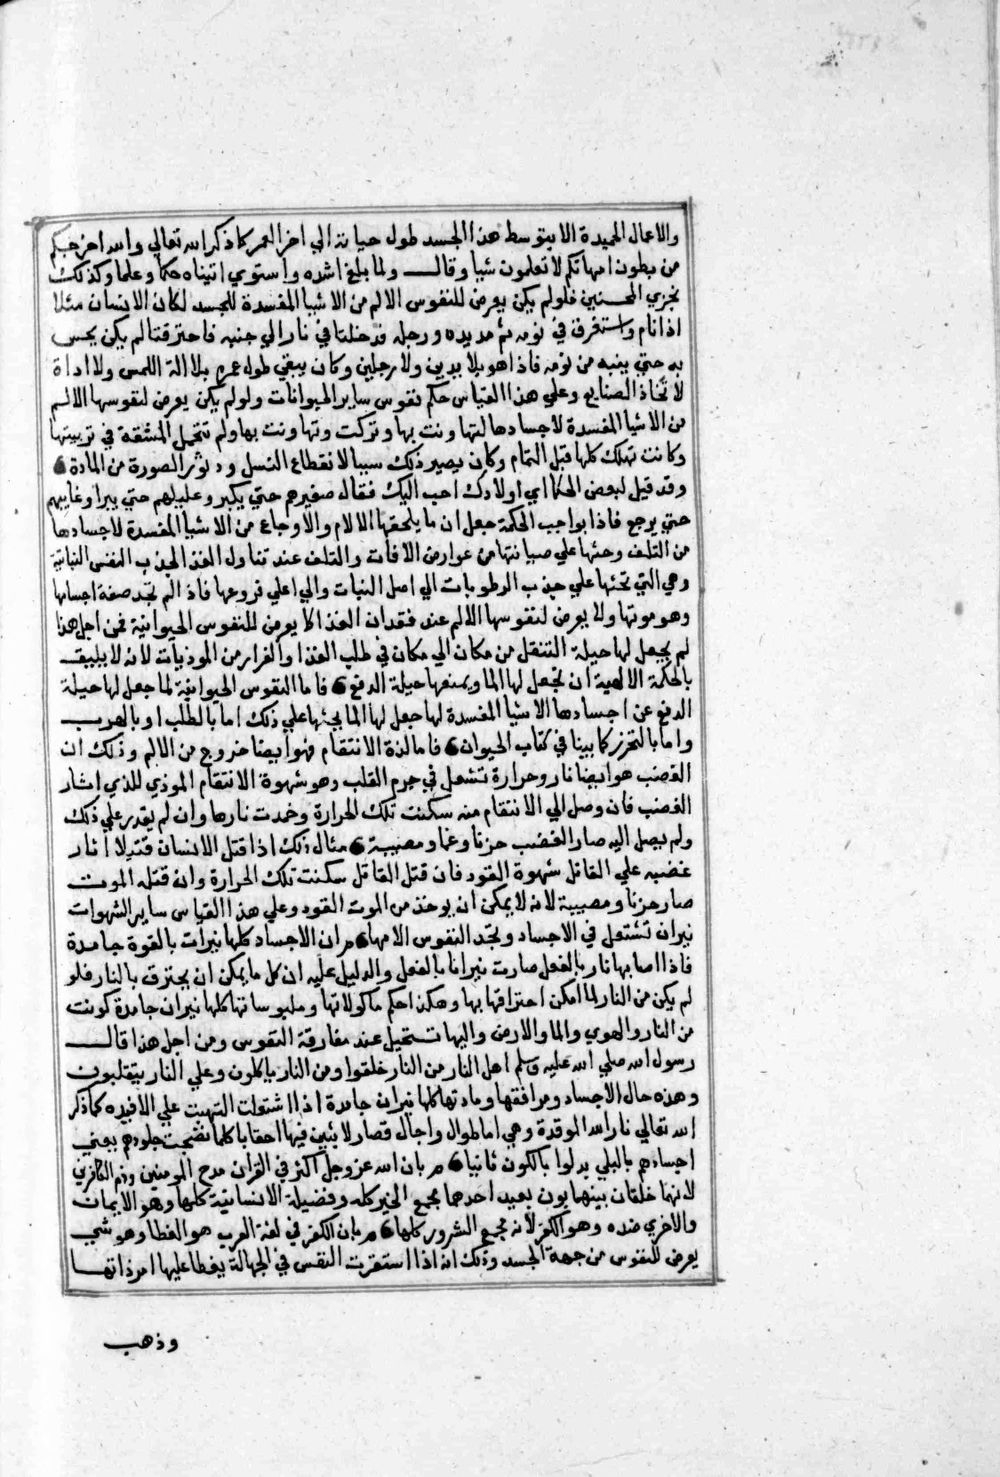 والاعمال الحميدة الا بتوسط هذا الجسد طول حياته الي اخر العمر كما ذكر الله تعالي والله اخرجكم
من بطون امهاتكم لا تعلمون شيا وقال ولما بلغ اشده واستوي اتيناه حكما وعلما وكذلك
نجزي المحسنين فلو لم يكن يعرض للنفوس الالم من الاشيا المفسدة للجسد لكان الانسان مثلا
اذا نام واستغرق في نومه ثم مد يده ورجله فدخلتا في نار الي جنبه فاحترقتا لم يكن يحس
به حتي ينبه من نومه فاذا هو بلا يدين ولا رجلين وكان يبقي طول عمره بلا الة اللمس ولا اداة
لاتخاذ الصنايع وعلي هذا القياس حكم نفوس ساير الحيوانات ولو لم يكن يعرض لنفوسها الالم
من الاشيا المفسدة لاجسادها لتهاونت بها وتركت وتهاونت بها ولم تتحمل المشقة في تربيتها
وكانت تهلك كلها قبل التمام وكان يصير ذلك سببا لانقطاع النسل ودثور الصورة من المادة
وقد قيل لبعض الحكما اي اولادك احب اليك فقال صغيرهم حتي يكبر وعليلهم حتي يبرا وغايبهم
حتي يرجع فاذا بواجب الحكمة جعل ان ما يلحقها الالام والاوجاع من الاشيا المفسدة لاجسادها
من التلف وحثها علي صيانتها من عوارض الافات والتلف عند تناول الغذا لجذب النفس النباتية
وهي التي تحثها علي جذب الرطوبات الي اصل النبات والي اعلي فروعها فاذا لم تجد صفة اجسامها
وهو موتها ولا يعرض لنفوسها الالم عند فقدان الغذا كما يعرض للنفوس الحيوانية فمن اجل هذا
لم يجعل لها حيلة التنقل من مكان الي مكان في طلب الغذا والفرار من الموذيات لانه لا يليق
بالحكمة الالهية ان تجعل لها الما ويمنعها حيلة الدفع فاما النفوس الحيوانية لما جعل لها حيلة
الدفع عن اجسادها الاشيا المفسدة لها جعل لها الما يحثها علي ذلك اما بالطلب او بالهرب
واما بالتحرز كما بينا في كتاب الحيوان فاما لذة الانتقام فهو ايضا خروج من الالم وذلك ان
الغضب هو ايضا نار وحرارة تشتعل في جرم القلب وهو شهوة الانتقام الموذي للذي اثار
الغضب فان وصل الي الانتقام منه سكنت تلك الحرارة وخمدت نارها وان لم يقدر علي ذلك
ولم يصل اليه صار الغضب حزنا وغما ومصيبة مثال ذلك اذا قتل الانسان قتيلا اثار
غضبه علي القاتل شهوة القود فان قتل القاتل سكنت تلك الحرارة وان قتله الموت
صار حزنا ومصيبة لانه لا يمكن ان يوخذ من الموت القود وعلي هذا القياس ساير الشهوات
نيران تشتعل في الاجساد وتجد النفوس الامها ثم ان الاجساد كلها نيران بالقوة جامدة
فاذا اصابها نار بالفعل صارت نيرانا بالفعل والدليل عليه ان كل ما يمكن ان يحترق بالنار فلو
لم يكن من النار لما امكن احتراقها بها وهكذا حكم ماكولاتها وملبوساتها كلها نيران جامدة كونت
من النار والهوي والما والارض واليها تستحيل عند مفارقة النفوس ومن اجل هذا قال
رسول الله صلي الله عليه وسلم اهل النار من النار خلقوا ومن النار ياكلون وعلي النار يتقلبون
وهذه حال الاجساد ومرافقها ومادتها كلها نيران جامدة اذا اشتعلت التهبت علي الافيده كما ذكر
الله تعالي نار الله الموقدة وهي اما طوال واجال قصار لابثين فيها احقابا كلما نضجت جلودهم يعني
اجسادهم بالبلي بدلوا بالكون ثانيا ثم بان الله عز وجل اكثر في القران مدح المومنين وذم الكافرين
لانهما خلقان بينهما بون بعيد احدهما مجمع الخير كله وفضيلة الانسانية كلها وهو الايمان
والاخري ضده وهو الكفر لانه مجمع الشرور كلها ثم بان الكفر في لغة العرب هو الغطا وهو شي
يعرض للنفوس من جهة الجسد وذلك انه اذا استقرت النفس في الجهالة يغطا عليها امر ذاتها
وذهب